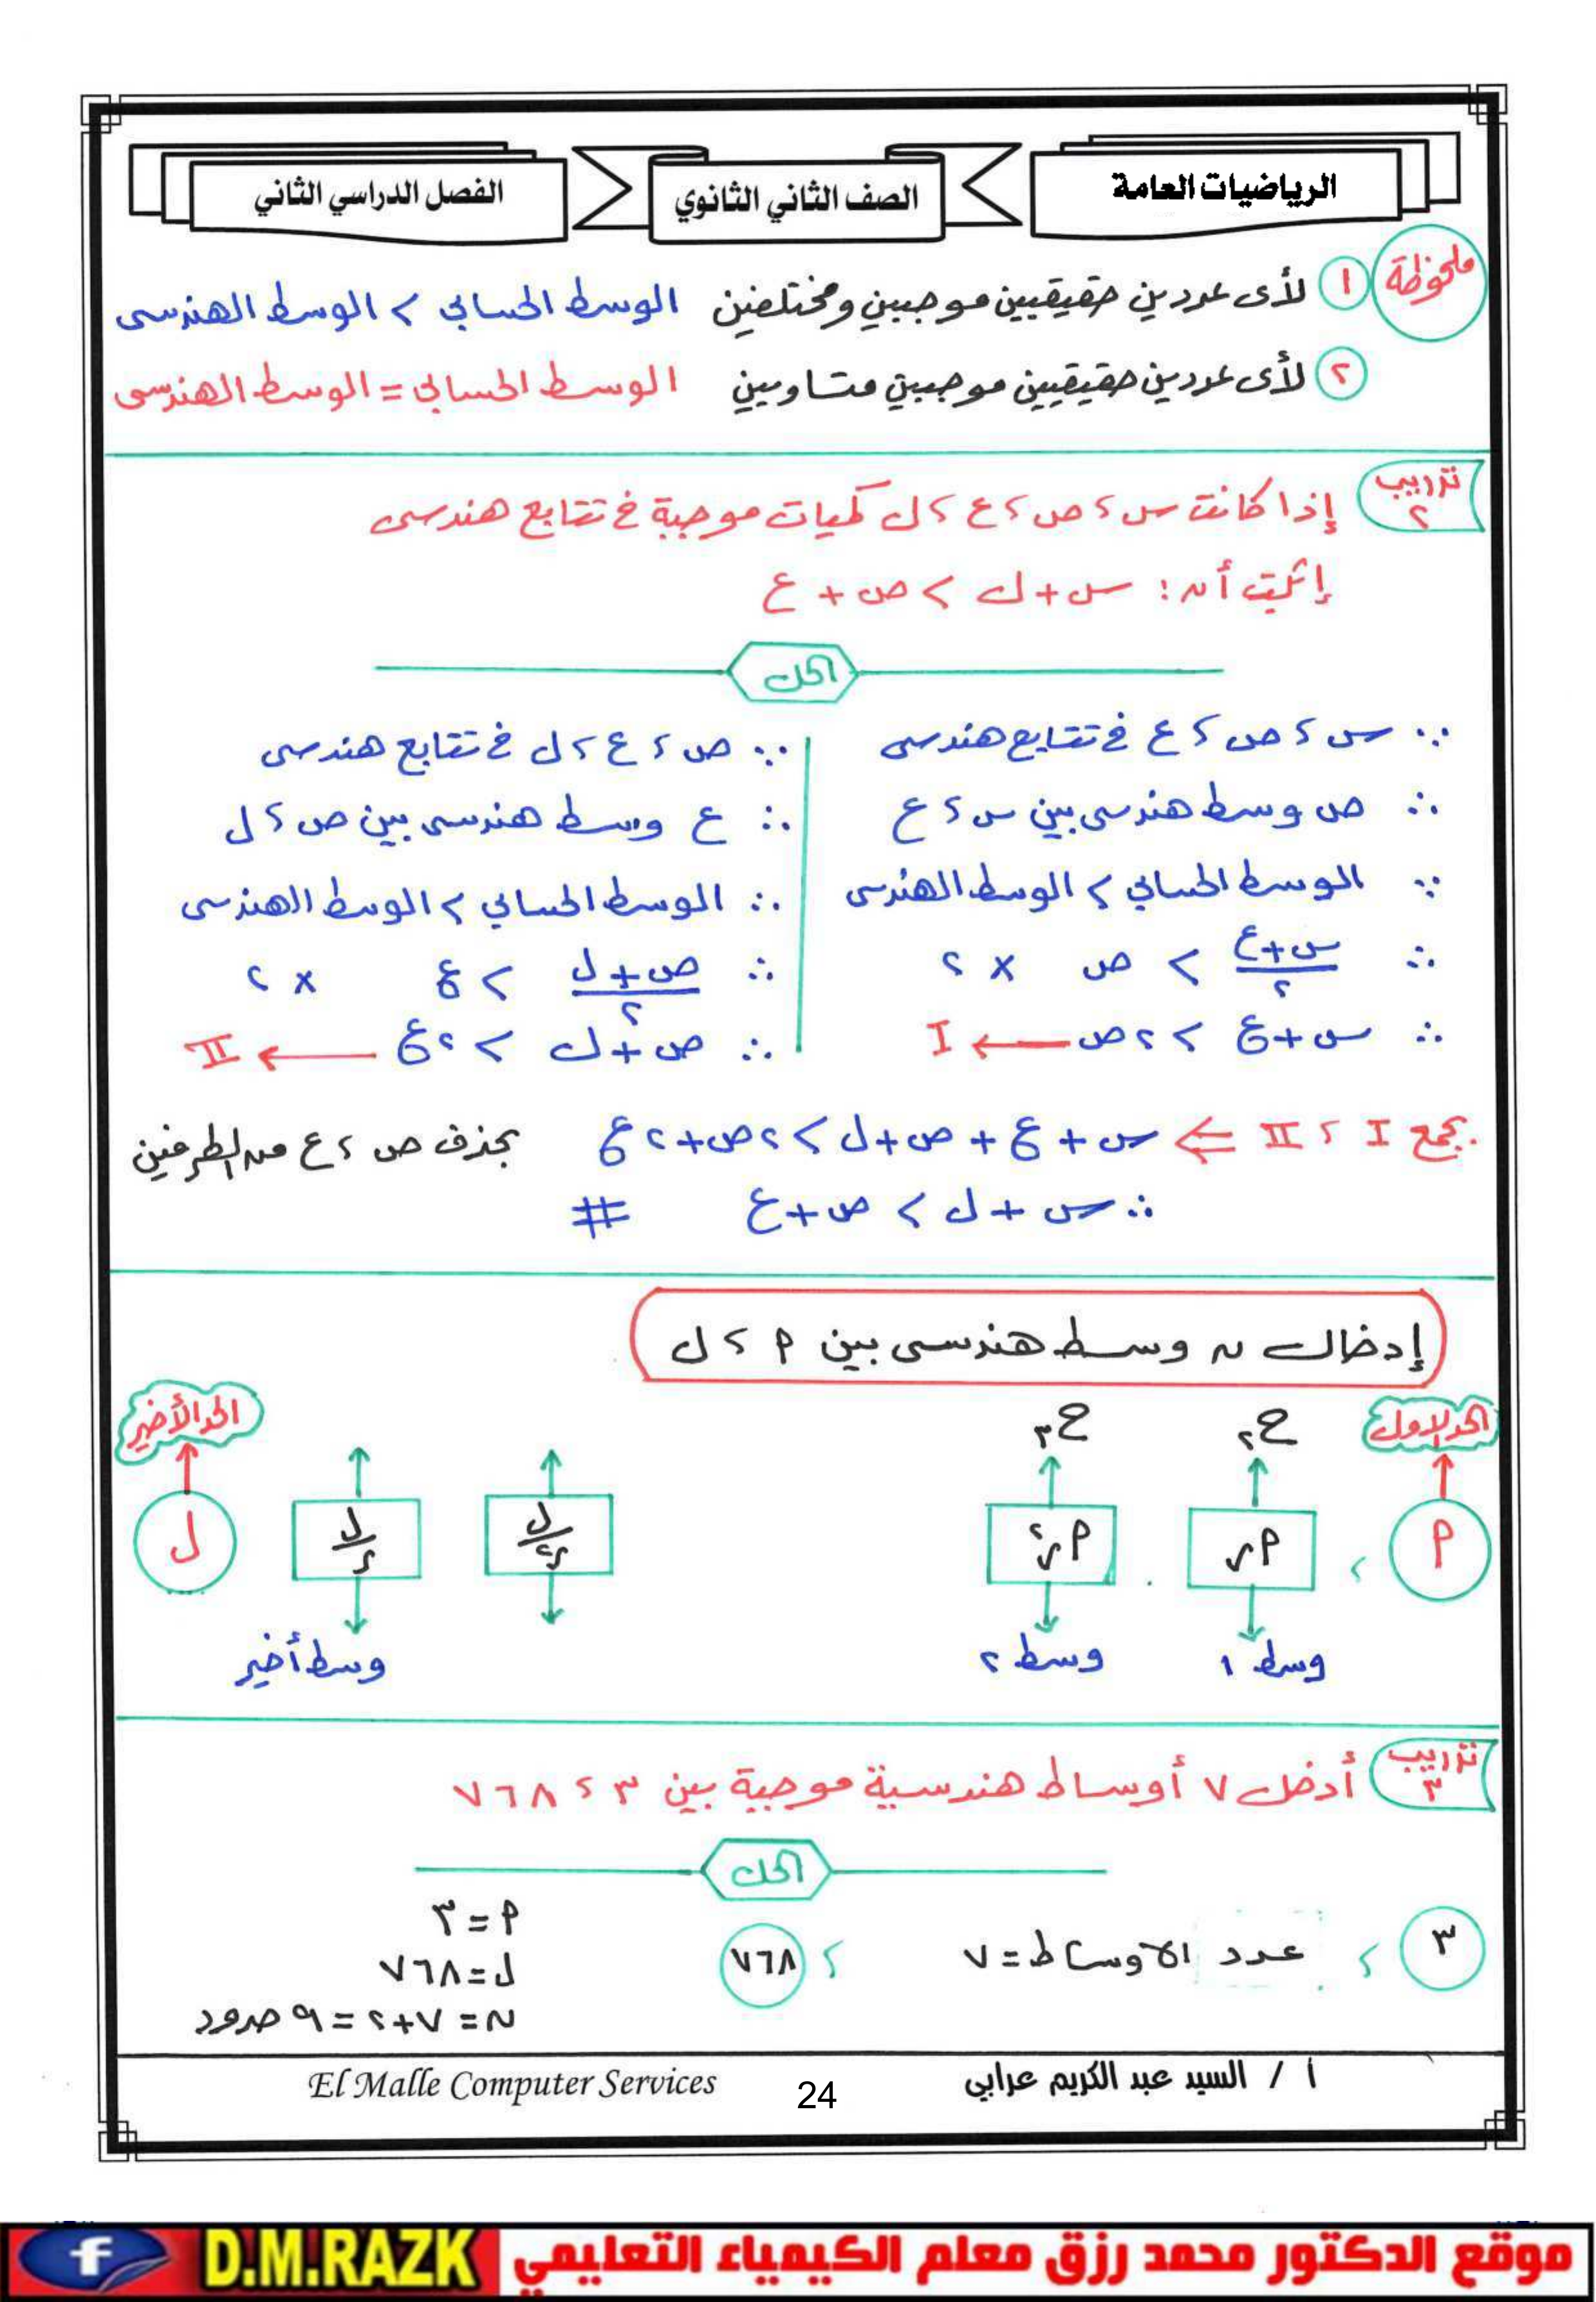 الرياضيات العامة
الصف الثاني الثانوي
الفصل الدراسي الثاني
ملحوظة ١ لأى عددين حقيقيين موجبين ومختلفين الوسط الحسابى > الوسط الهندسى
٢ لأى عددين حقيقيين موجبين متساويين الوسط الحسابى = الوسط الهندسى
تدريب ٢ إذا كانت س ، ص ، ع ، ل كميات موجبة فى تتابع هندسى
إثبت أن : س + ل > ص + ع
الحل
∵ س ، ص ، ع فى تتابع هندسى
∴ ص وسط هندسى بين س ، ع
∵ الوسط الحسابى > الوسط الهندسى
∴ (س + ع)/٢ > ص × ٢
∴ س + ع > ٢ص ← I
∵ ص ، ع ، ل فى تتابع هندسى
∴ ع وسط هندسى بين ص ، ل
∴ الوسط الحسابى > الوسط الهندسى
∴ (ص + ل)/٢ > ع × ٢
∴ ص + ل > ٢ع ← II
بجمع I ، II ⇐ س + ع + ص + ل > ٢ص + ٢ع بحذف ص ، ع من الطرفين
∴ س + ل > ص + ع #
إدخال ن وسط هندسى بين م ، ل
الحد الاول ح٢ ح٣ الحد الأخير
م ، م ر م ر٢ ل/ر٢ ل/ر ل
وسط ١ وسط ٢ وسط أخير
تدريب ٣ أدخل ٧ أوساط هندسية موجبة بين ٣ ، ٧٦٨
الحل
٣ ، عدد الاوساط = ٧ ، ٧٦٨
م = ٣
ل = ٧٦٨
ن = ٧ + ٢ = ٩ حدود
أ / السيد عبد الكريم عرابي
24
El Malle Computer Services
موقع الدكتور محمد رزق معلم الكيمياء التعليمي D.M.RAZK f